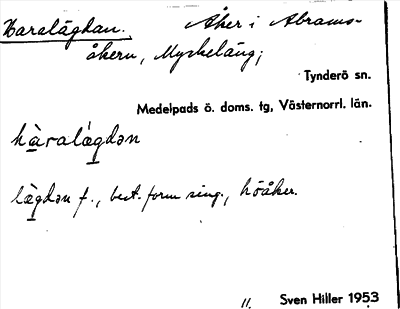 Haralägdan. Åker i Abrams-
åkern, Myckeläng;
Tynderö sn.
Medelpads ö. doms. tg, Västernorrl. län.
hàralæ̀gdən
læ̀gdən f., best. form sing., höåker.
11. Sven Hiller 1953